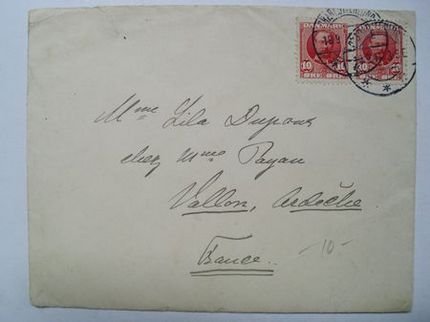 DANMARK DANMARK
10 10 10
ØRE ØRE
Mme Lila Dupons
chez Mme Payan
Vallon, Ardèche
France.
-10-